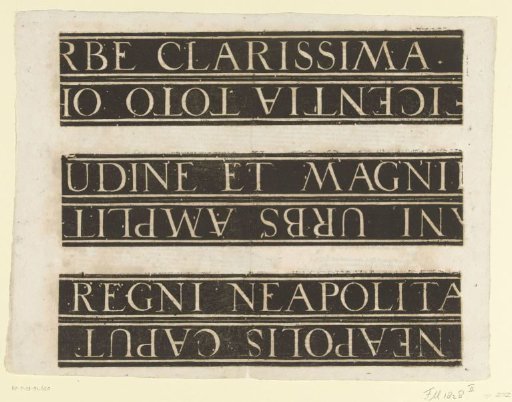 RBE CLARISSIMA ·
ICENTIA TOTO O
UDINE ET MAGNI
ANI URBS AMPLIT
REGNI NEAPOLITA
NEAPOLIS CAPUT